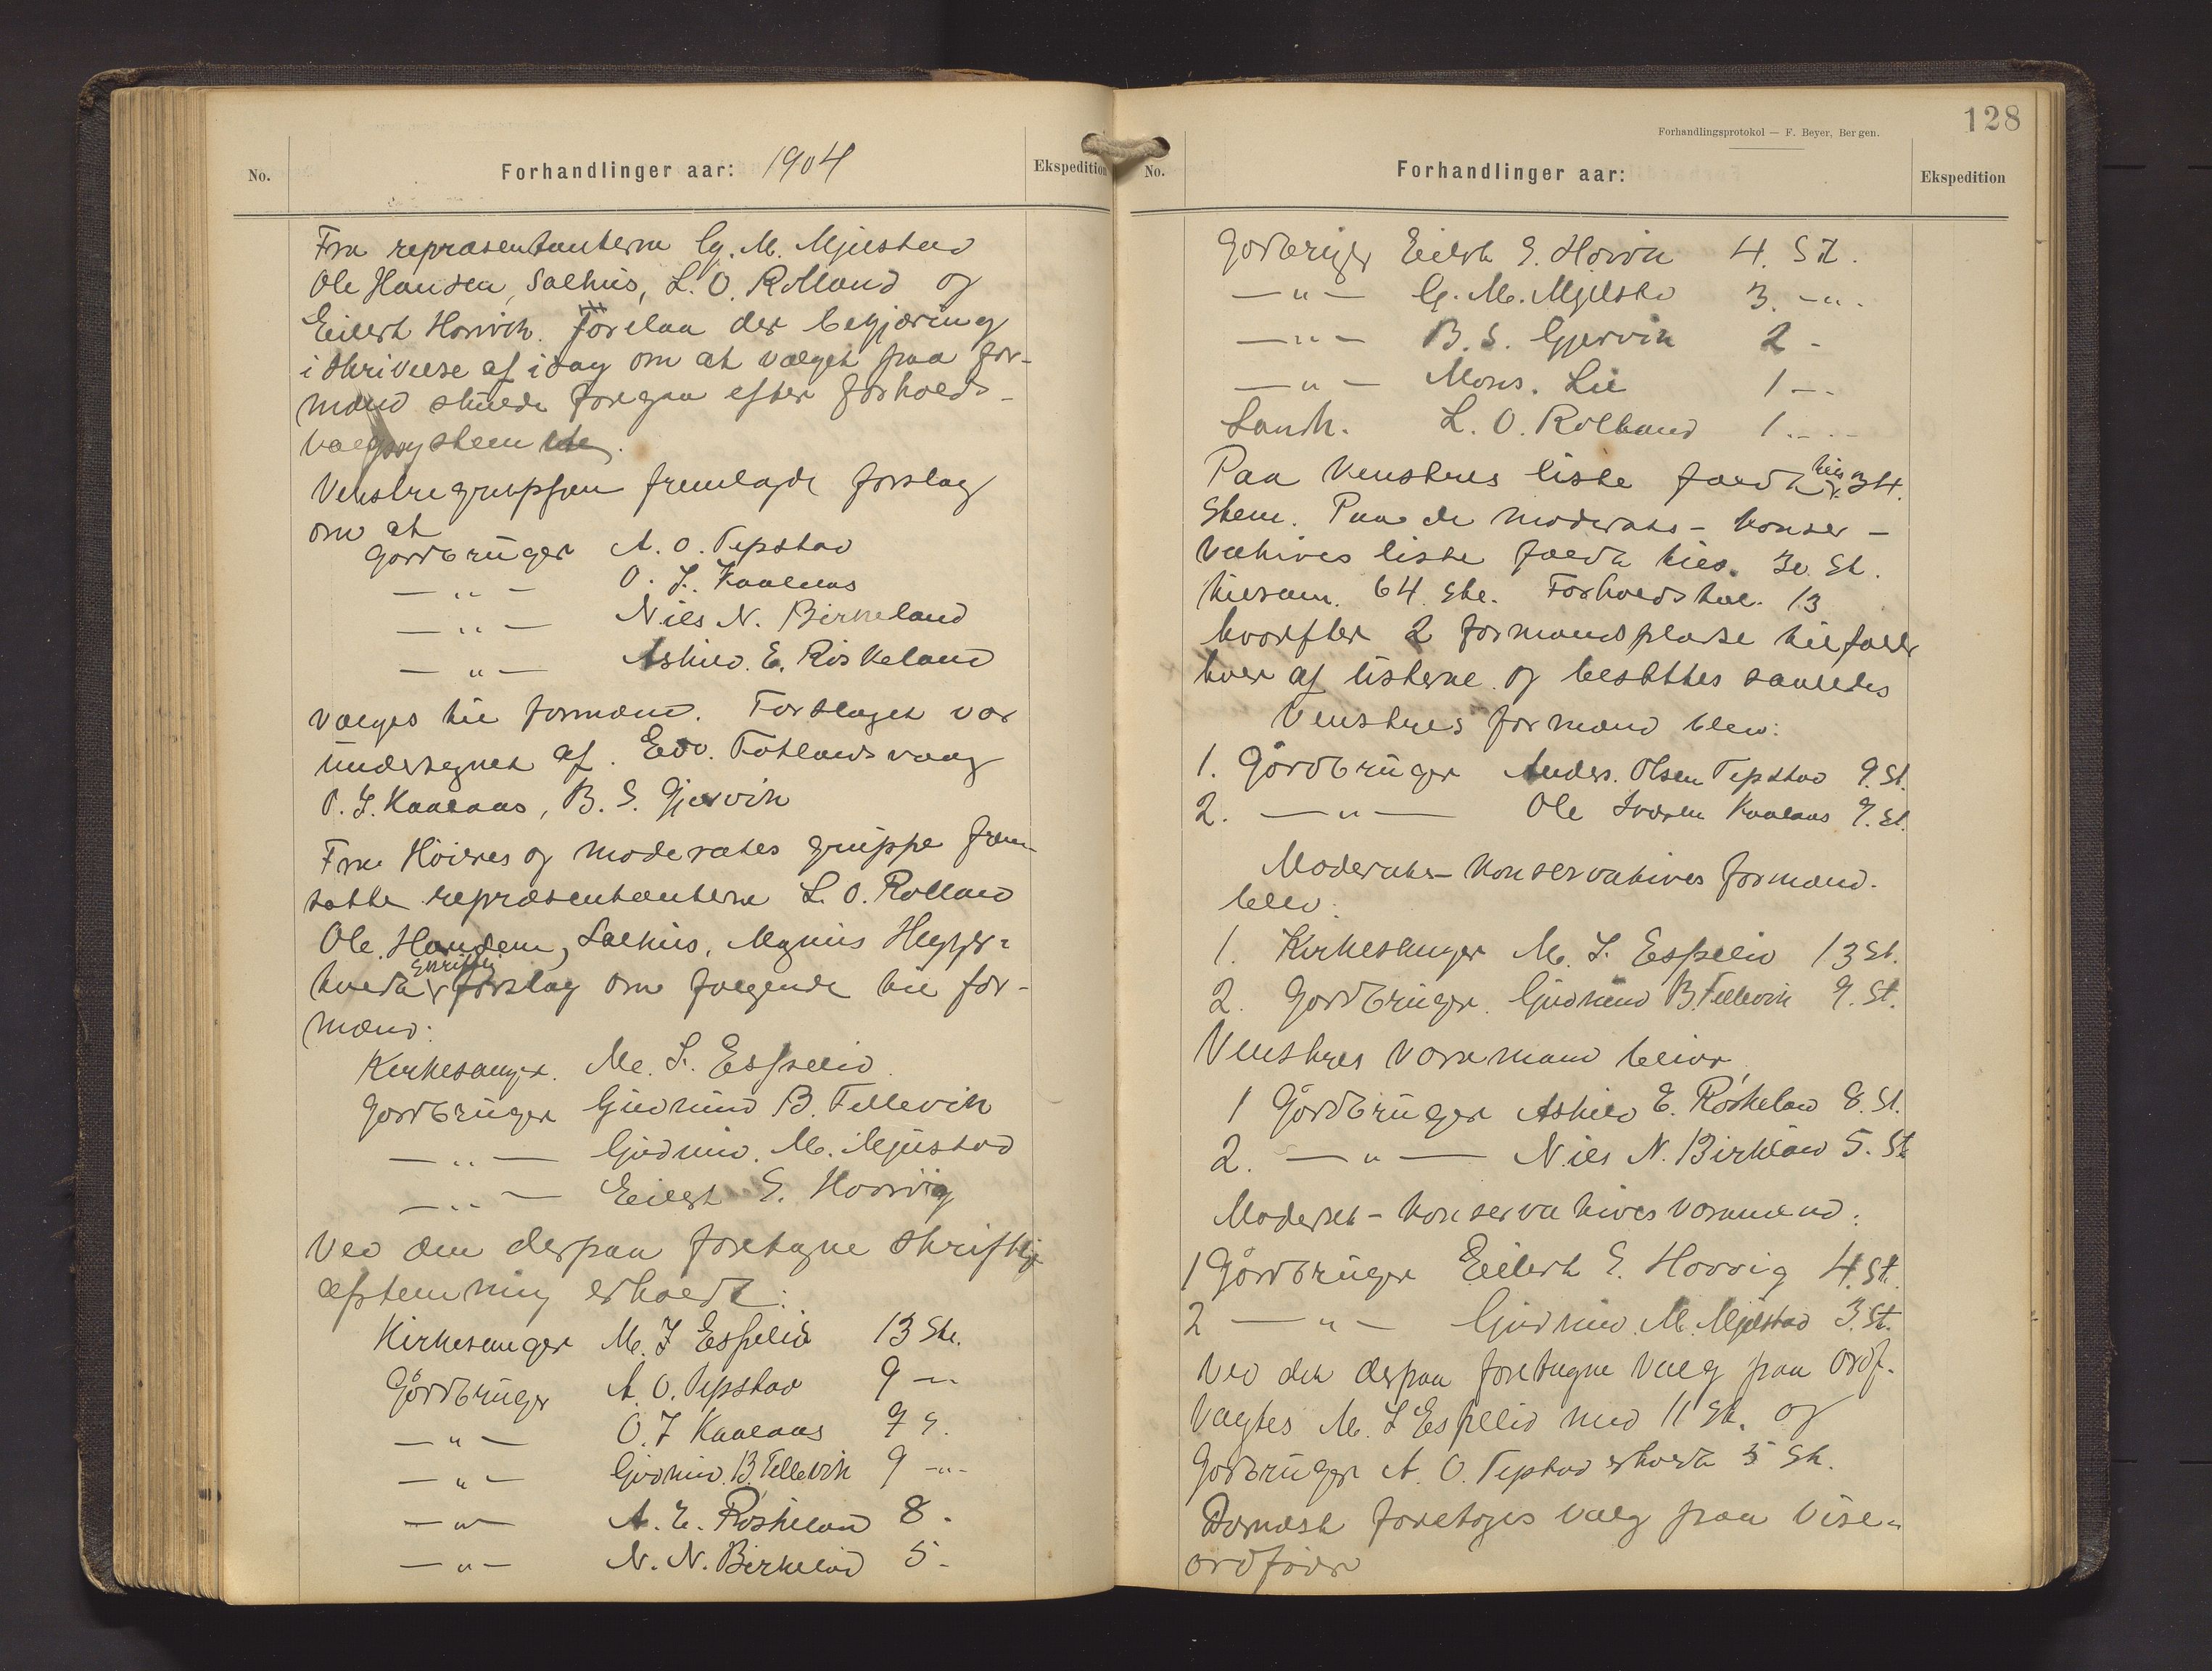 No.
Forhandlinger aar: 1904
Ekspedition
Fra repræsentanterne G. M. Mjelstad
Ole Hansen, Salhus, L. O. Rolland og
Eilert Horvik. forelaa der begjæring
i skrivelse af idag om at valget paa for-
mænd skulde foregaa efter forholds-
valgsystem
Venstregruppen fremlagde forslag
om at
Gardbruger A. O. Tepstad
— " — O. I. Kaalaas
— " — Nils N. Birkeland
— " — Askild. E. Röskeland
vælges til formænd. Forslaget var
undersegnet af. Edv. Fotlandsvaag
O. I. Kaalaas, B. S. Gjervik
Fra Höires og moderates gruppe frem-
satte repræsentanterne L. O. Rolland
Ole Hansen, Salhus, Magnus Hegger-
skriftli
forslag om følgende til for-
mænd:
Kirkesanger. M. S. Espelid
Gardbruger Gudmund B. Tellevik
— " — Gudmun. M. Mjelstad
— " — Eilert S. Horvig
Ved den derpaa foretagne skriftlige
afstemning erholdt:
Kirkesanger M. J Espelid 13 Ste.
Gårdbruger A. O. Tepstad 9 -"-
— " — O. J Kaalaas 9 S.
— " — Gudmun. B. Tellevik 9 -"-
— " — A. E. Röskeland 8 -
— " — N. N. Birkelad 5 -
128
Forhandlingsprotokol — F. Beyer, Bergen.
No.
Forhandlinger aar:
Ekspedition
Gardbruger Eilert S. Horvik 4. St.
— " — G. M. Mjelstad 3. -"-
— " — B. S. Gjervik 2 -
— " — Mons. Lie 1 --
Landh. L. O. Rolland 1 ---
Paa Venstres liste faldt tils. 34.
Stem. Paa de moderate - konser-
vatives liste faldt tils. 30. St.
tilsam. 64 Ste. Forholdstal. 13
hvorefter 2 formandspladse tilfalder
hver af listerne og besættes saaledes
Venstres formænd blev:
1. Gårdbruger Anders. Olsen Tepstad 9. St.
2. — " — Ole Ivarsen Kaalaas 9. St.
Moderate - konservatives formænd.
blev:
1. Kirkesanger M. S. Espelid 13 St.
2. Gardbruger. Gudmund B. Tellevik 9. St.
Venstres varamænd blev
1 Gårdbruger Askild E. Röskeland 8. St.
2. — " — Nils N. Birkeland 5. St
Moderat - konservatives varamænd:
1 Gårdbruger Eilert S. Horvig 4. St.
2 — " — Gudmun. M. Mjelstad 3. St.
Ved det derpaa foretagne valg paa Ordf.
valgtes M. S Espelid med 11 St. og
Gardbruger A. O. Tepstad erholdt 5 St.
Dernæst foretoges valg paa Vise-
ordfører